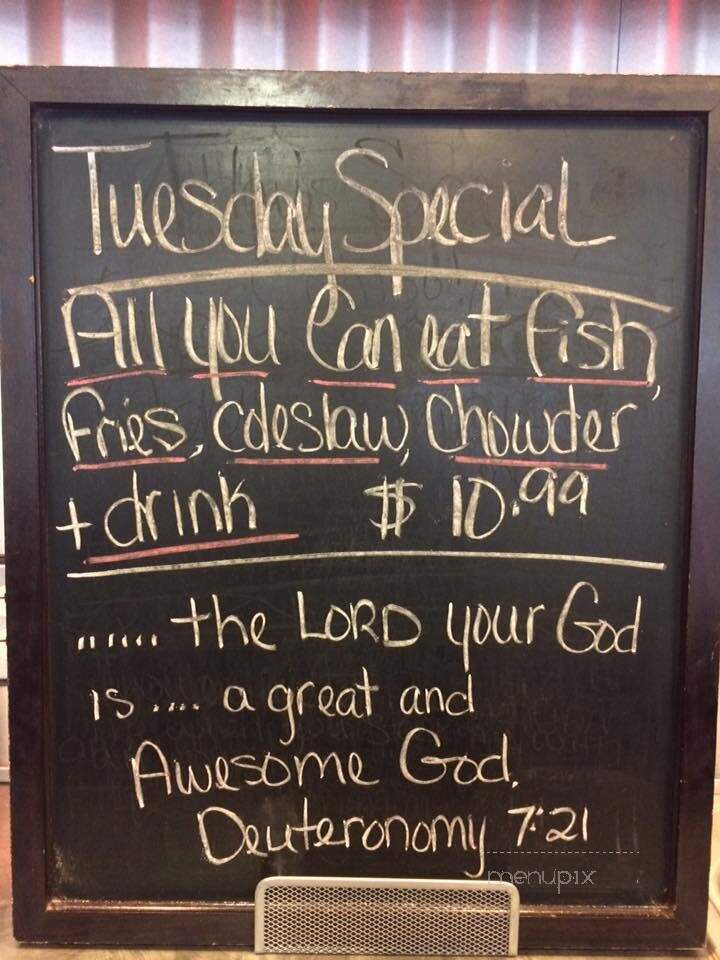 Tuesday Special
All you Can eat fish,
Fries, Coleslaw, Chowder
+ drink $10.99
...... the LORD your God
is .... a great and
Awesome God.
Deuteronomy 7:21
menupix